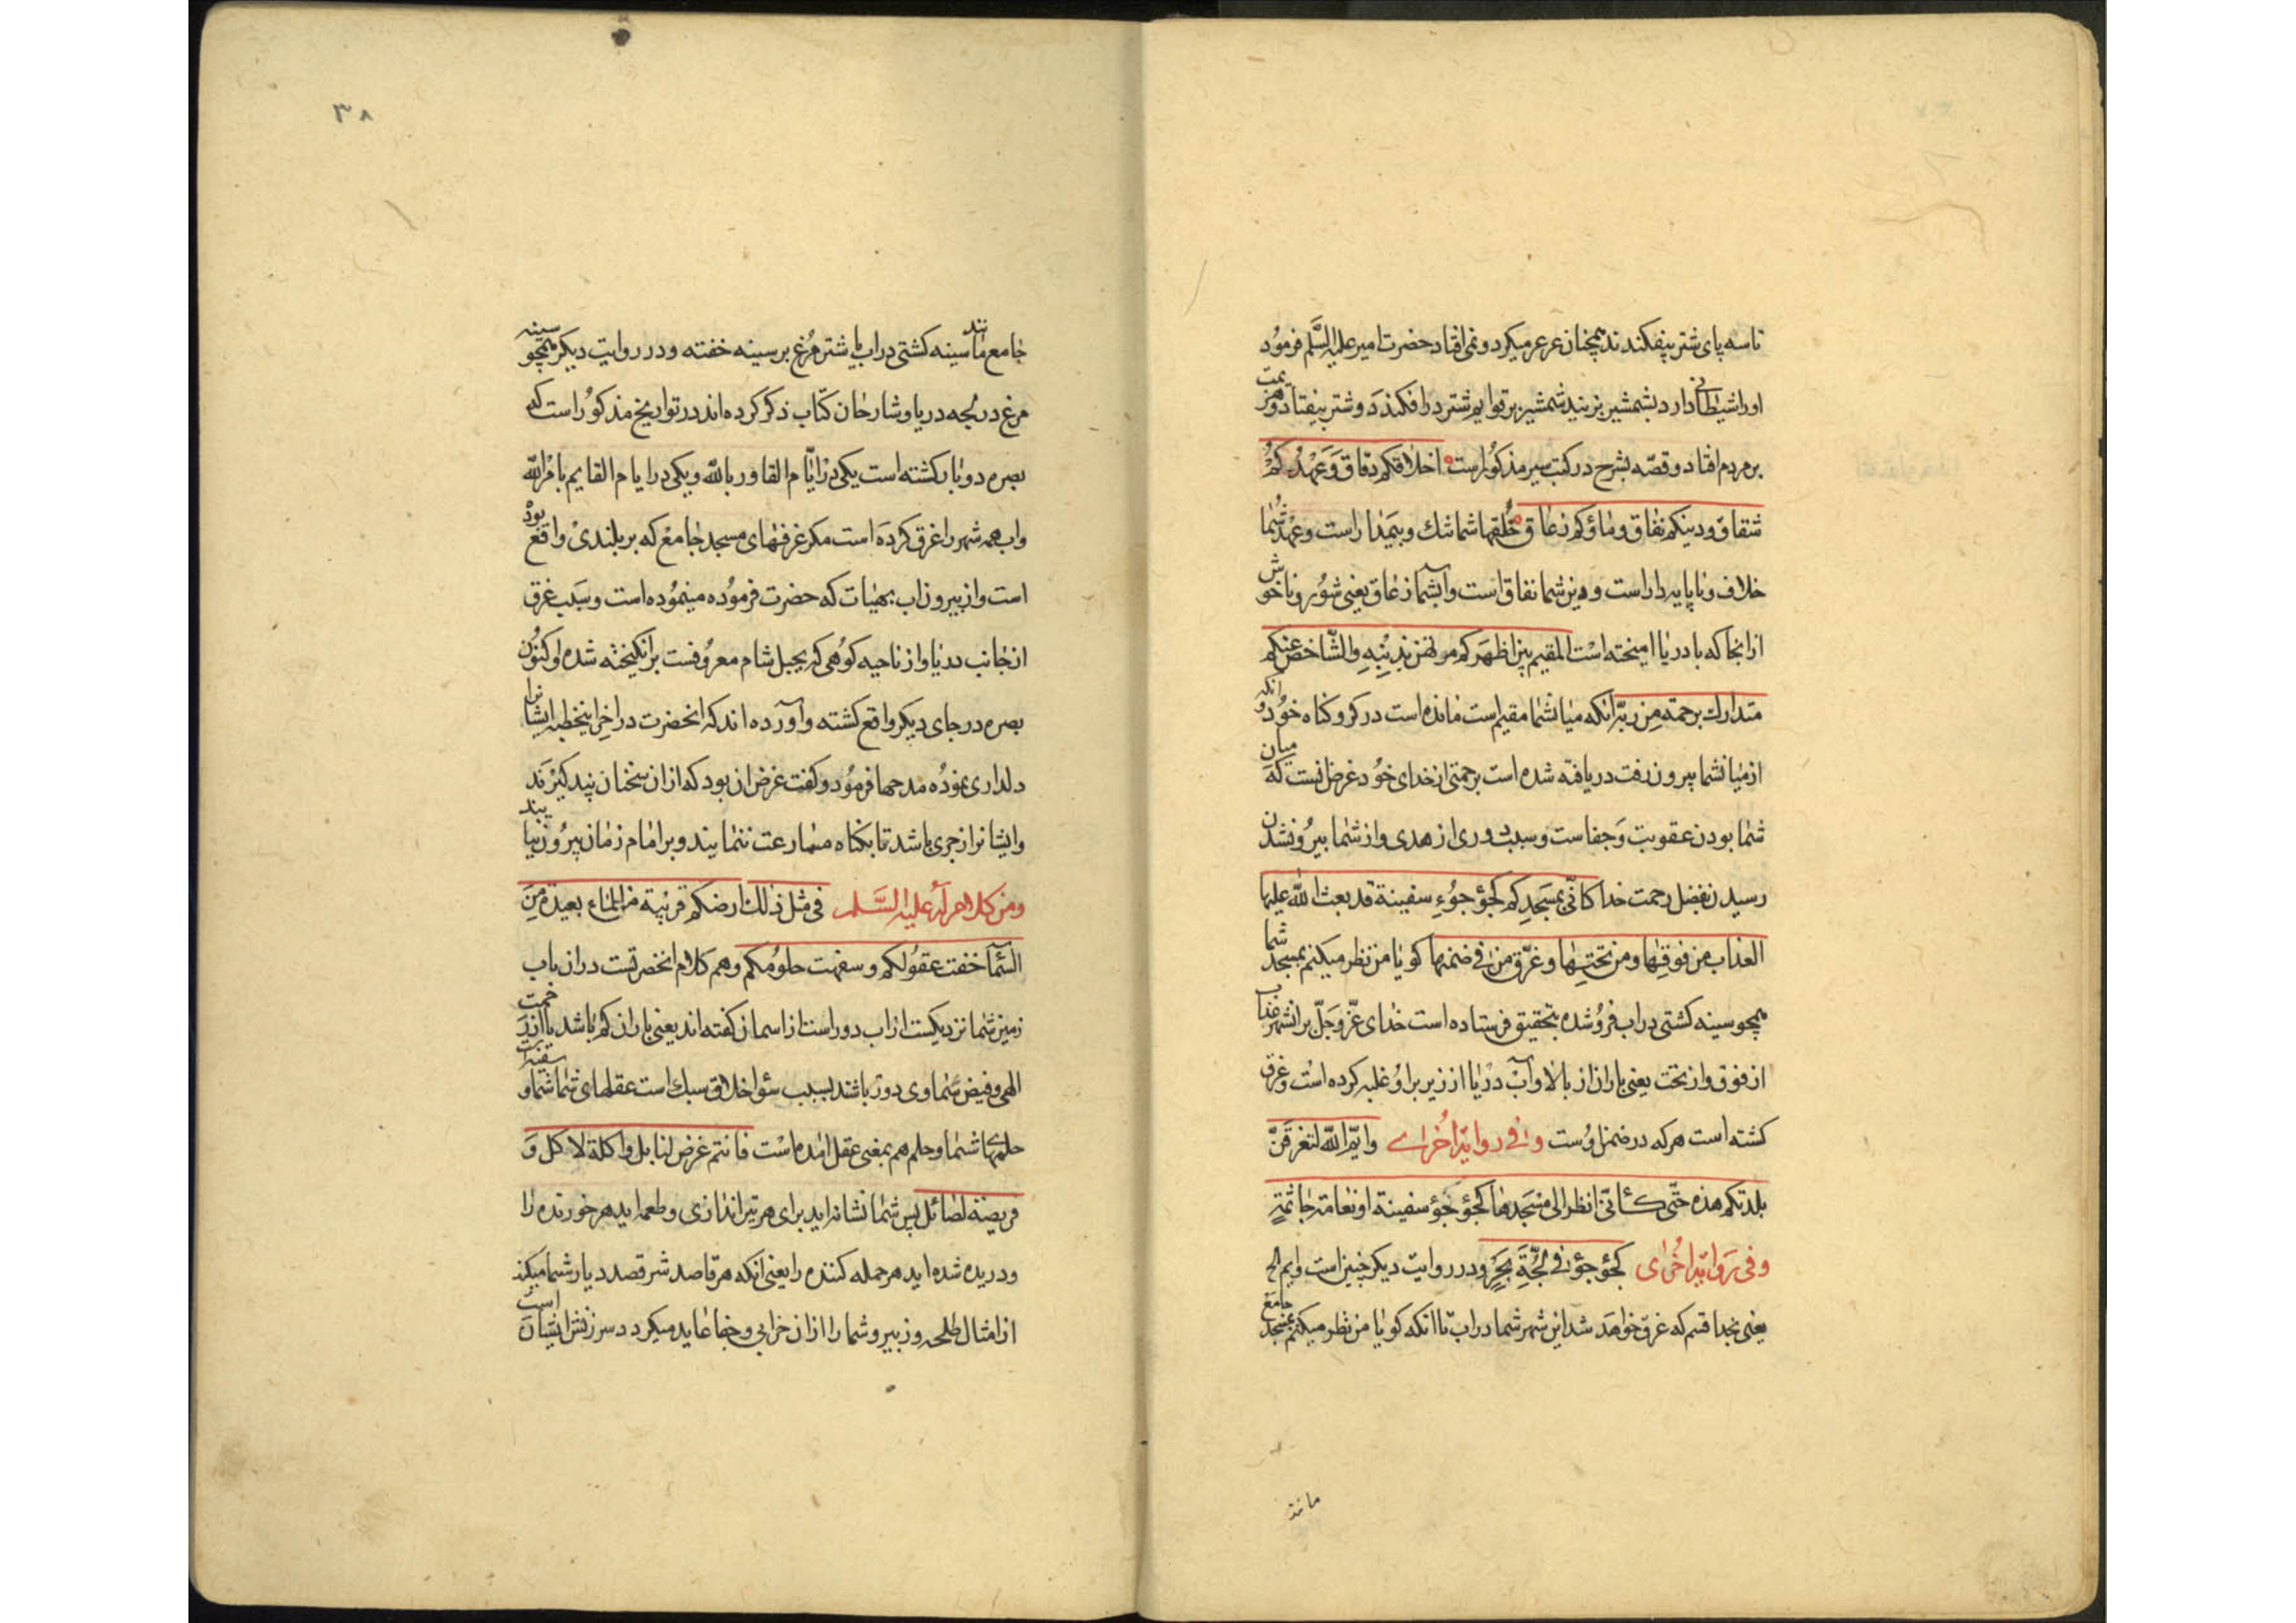 تا سه پای شتر بیفکندند همچنان عرعر میکرد و نمی افتاد حضرت امیر علیه السَّلم فرمُود
او را شیطانی دارد بشمشیر بزنید شمشیر بر قوایم شتر در افکندند و شتر بیفتاد و هزیمت
بر مردم افتاد و قصّه بشرح در کتب سیر مذکور است اخلاقکم دقاق وَعَهْدُکُمْ
شقاق و دینکم نفاق و ماؤکم زعاق خُلقهای شما تنک و بیمدار است و عهد شُما
خلاف و ناپایدار است و دین شما نفاق است و آب شما زعاق یعنی شُور و ناخوش
از انجا که با دریا امیخته است المقیم بین اظهرکم مرتهن بذنبه والشّاخص عنکم
متدارك برحمة من ربّه انکه میان شما مقیم است مانده است در کرو کناه خُود و انکه
از میان شما بیرون رفت دریافته شده است برحمتی از خدای خُود غرض انست که میان
شما بودن عقوبت وَجفاست و سبب دوری از هدی و از شما بیرُون شدن
رسیدن بفضل رحمت خدا کانّی بمسجدکم کجؤجُوءِ سفینة قد بعث الله علیها
العذاب من فوقها ومن تحتها وغرّق من فی ضمنها کویا من نظر میکنم بمسجد شما
همچو سینه کشتی در اب فرُو شده بتحقیق فرستاده است خدای عزّوجلّ بر انشهر عذاب
از فوق و از تحت یعنی باران از بالا و آب دریا از زیر بر اوُ غلبه کرده است و غرق
کشته است هر که در ضمن اوُست وفی روایة اُخرٰی وایم الله لتغرقنّ
بلدتکم هذه حتّی کأنّی انظر الی مسجدها کجؤجؤ سفینة او نعامة جاثمة
وفی روایة اُخرٰی کجؤجؤ فی لُجّةِ بحر و در روایت دیکر چنین است وایم الخ
یعنی بخدا قسم که غرق خواهد شد این شهر شما در اب تا انکه کویا من نظر میکنم بمسجد جامع
مانند
۳۸
جامع مانند سینه کشتی در اب یا شتر مُرغ بر سینه خفته و در روایت دیکر همچو سینه
مرغ در لجه دریا و شارحان کتاب ذکر کرده اند در تواریخ مذکوُر است که
بصره دو بار کشته است یکی در ایّام القادر بالله و یکی در ایام القایم بامرالله
و اب همه شهر را غرق کردَه است مکر غرفهای مسجد جامع که بر بلندی واقع بود
است و از بیرون اب بهیات که حضرت فرمُوده مینمُوده است و سَبب غرق
از جانب دریا و از ناحیه کوُهی که بجبل شام معرُوفست بر انکیخته شده او کنُون
بصره در جای دیکر واقع کشته و آورده اند که انحضرت در اخِر اینخطبه ایشانرا
دلداری نمُوده مدحها فرمُود و کفت غرض ان بود که از ان سخنان پند کیرند
و ایشانرا زجری باشد تا بکناه مسارعت ننمایند و بر امام زمان بیرُون نیایند
ومن کلام له علیه السَّلم فی مثل ذلك ارضکم قریبة من الماء بعیدة مِنَ
السّماء خفت عقوُلکم و سفهت حلوُمکم و هم کلام انحضرتست در ان باب
زمین شما نزدیکست از اب دور است از اسمان کفته اند یعنی باران کم باشد یا از رَحمت
الهی و فیض سَماوی دور باشند بسبب سُوٴ اخلاق سبك است عقلهای شما و سفیه است
حلمهای شما و حلم هم بمعنی عقل امده است فانتم غرض لنابل و اکلة لاکل وَ
فریصة لصائل پس شما نشانه اید برای هر تیر اندازی و طعمه اید هر خورنده را
و دریده شده اید هر حمله کننده را یعنی انکه هر قاصد شر قصد دیار شما میکند
از امثال طلحه و زبیر و شما را از ان خرابی و جفا عاید میکردد سرزنش ایشان است